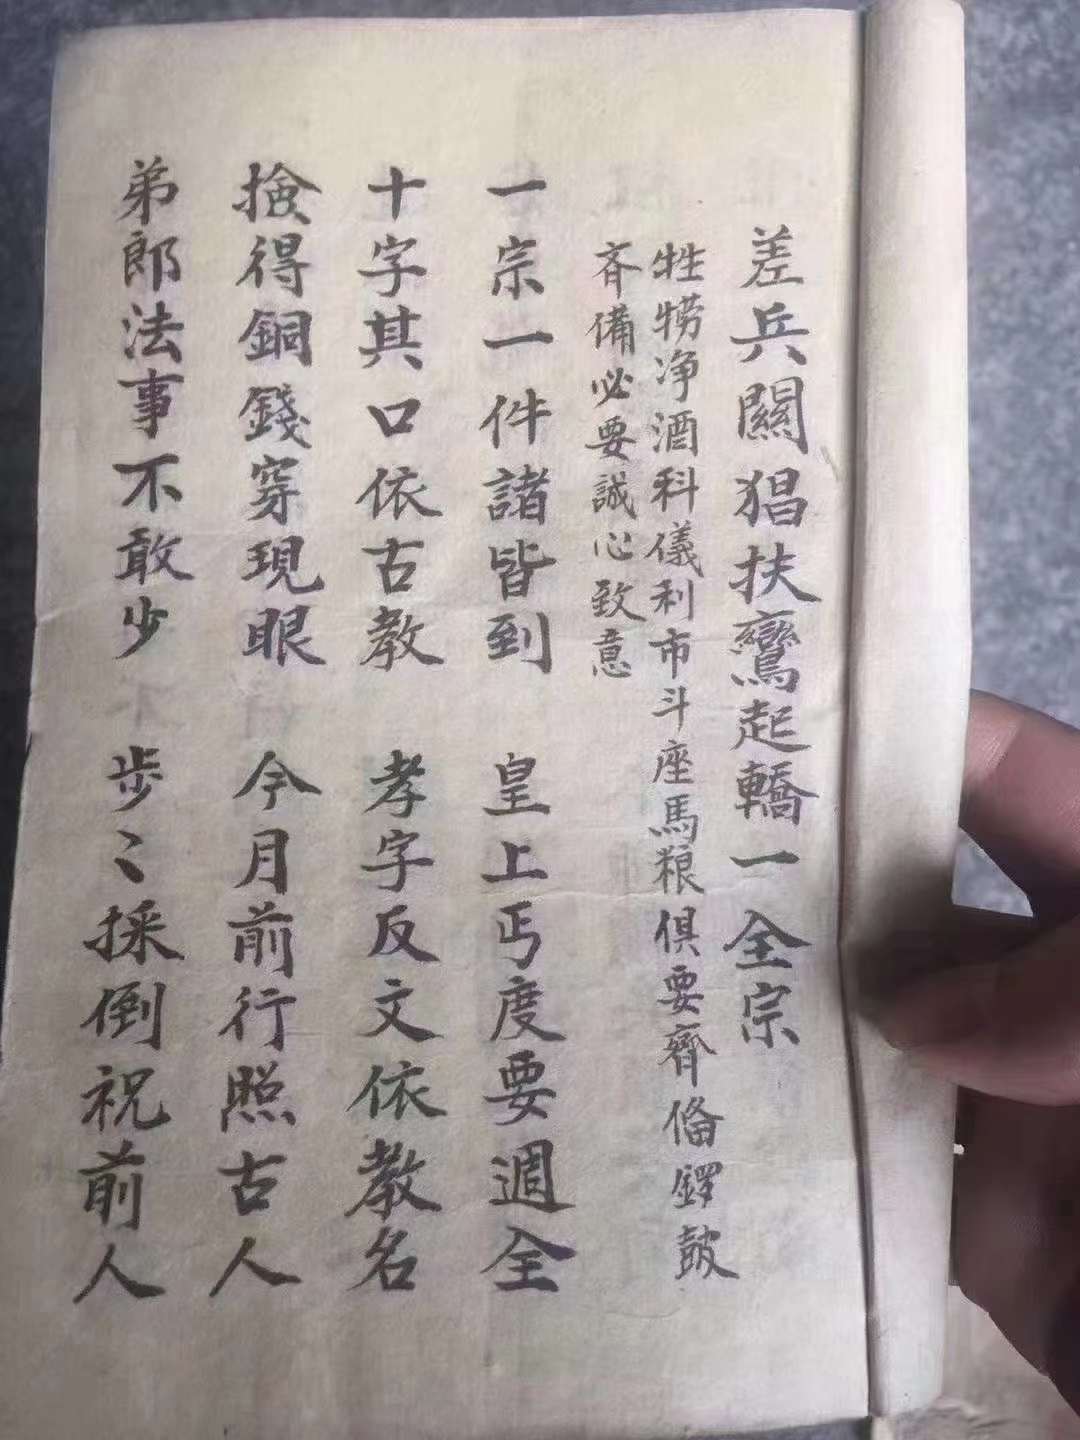 差兵關猖扶鸞起轎一全宗
牲牢净酒科儀利市斗座馬粮俱要齊俻鑼鼓
斉備必要誠心致意
一宗一件諸皆到　皇上丐度要週全
十字其口依古教　孝字反文依教名
撿得銅錢穿現眼　今月前行照古人
弟郎法事不敢少　步〻採倒祝前人